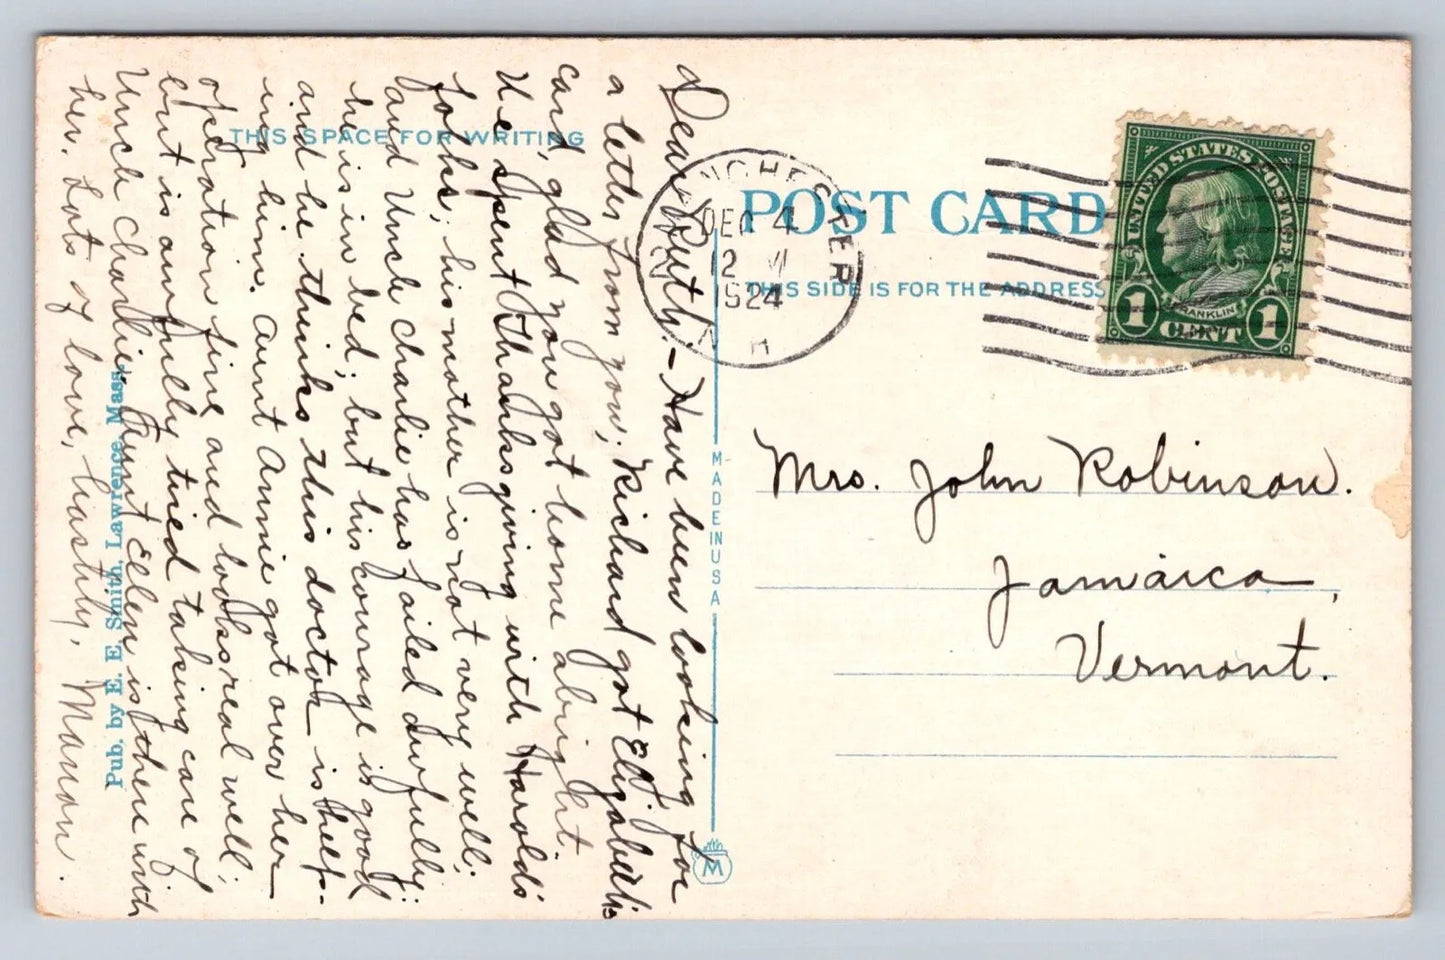 THIS SPACE FOR WRITING
Dear Ruth:- Have been looking for
a letter from you; Richard got Elizabeth's
card, glad you got home alright.
We spent Thanksgiving with Harold's
folks; his mother is not very well;
and Uncle Charlie has failed awfully;
he is in bed; but his courage is good
and he thinks this doctor is help-
ing him. Aunt Annie got over her
operation fine and looks real well;
but is awfully tired taking care of
Uncle Charlie. Aunt Ellen is there with
her. Lots of love, hastily, Manon.
Pub. by E. E. Smith, Lawrence, Mass.
MADE IN USA
M
MANCHESTER
DEC 4
12 M
1924
N H
POST CARD
THIS SIDE IS FOR THE ADDRESS
UNITED STATES POSTAGE
FRANKLIN
1 CENT 1
Mrs. John Robinson.
Jamaica,
Vermont.